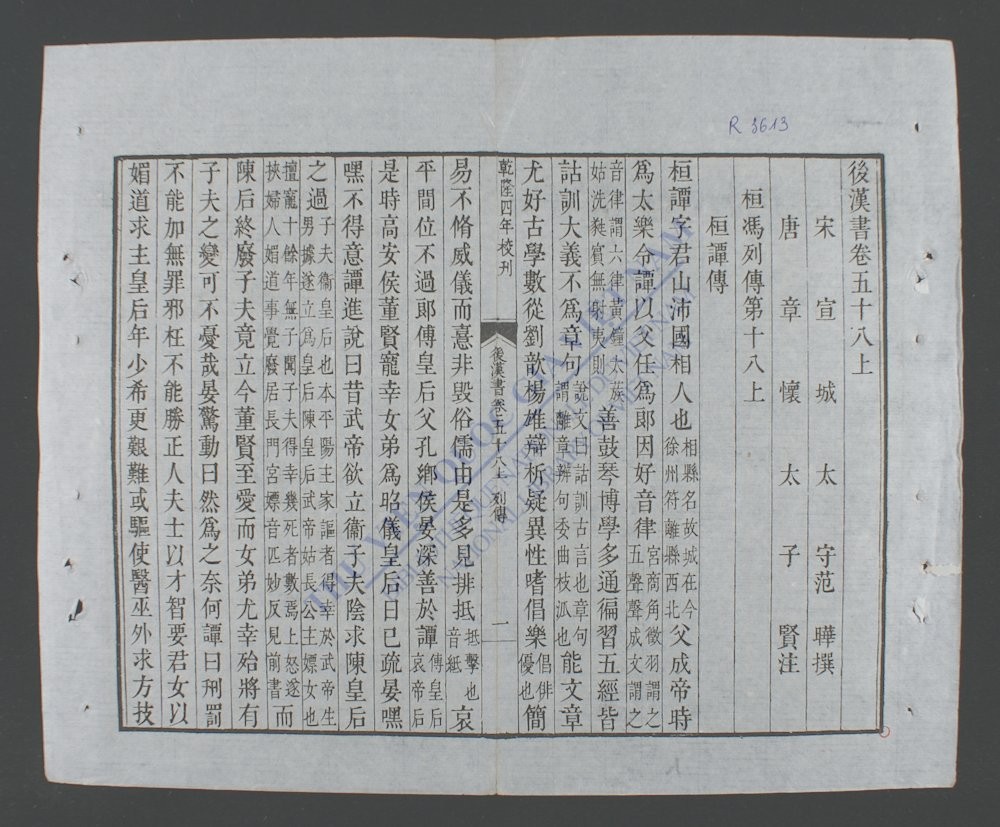 R 3613
後漢書卷五十八上
宋宣城太守范曄撰
唐章懷太子賢注
桓馮列傳第十八上
桓譚傳
桓譚字君山沛國相人也相縣名故城在今徐州符離縣西北父成帝時
爲太樂令譚以父任爲郎因好音律宮商角徵羽謂之五聲聲成文謂之
音律謂六律黃鐘太蔟姑洗蕤賓無射夷則善鼓琴博學多通徧習五經皆
詁訓大義不爲章句說文曰詁訓古言也章句謂離章辨句委曲枝泒也能文章
尤好古學數從劉歆楊雄辯析疑異性嗜倡樂倡俳優也簡
乾隆四年校刊
後漢書卷五十八上 列傳
一
易不脩威儀而憙非毀俗儒由是多見排抵抵擊也音紙哀
平間位不過郎傅皇后父孔鄉侯晏深善於譚傅皇后哀帝后
是時高安侯董賢寵幸女弟爲昭儀皇后日已疏晏嘿
嘿不得意譚進說曰昔武帝欲立衞子夫陰求陳皇后
之過子夫衞皇后也本平陽主家謳者得幸於武帝生男據遂立爲皇后陳皇后武帝姑長公主嫖女也
擅寵十餘年無子聞子夫得幸幾死者數焉上怒遂挾婦人媚道事覺廢居長門宮嫖音匹妙反見前書而
陳后終廢子夫竟立今董賢至愛而女弟尤幸殆將有
子夫之變可不憂哉晏驚動曰然爲之奈何譚曰刑罰
不能加無罪邪枉不能勝正人夫士以才智要君女以
媚道求主皇后年少希更艱難或驅使醫巫外求方技
THƯ VIỆN QUỐC GIA VIỆT NAM